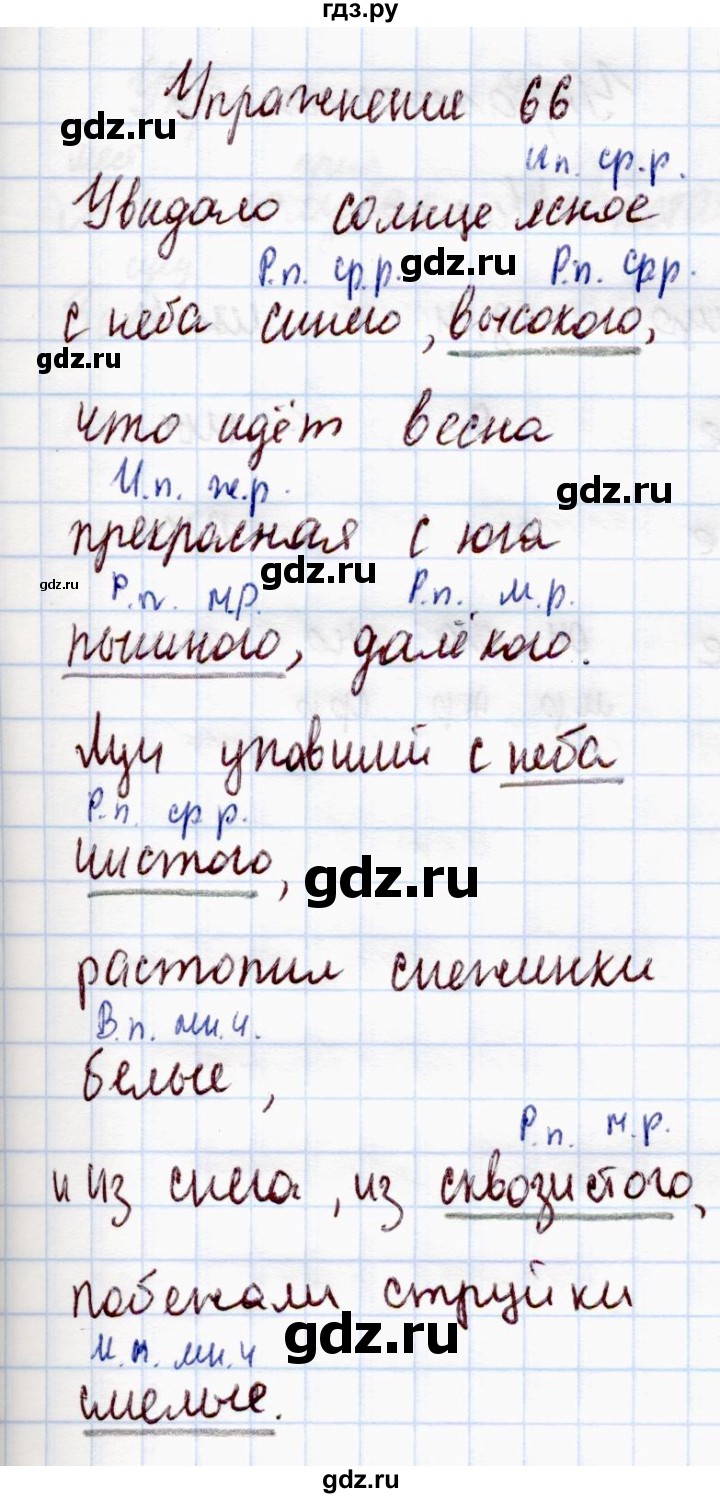 гдз.ру
Упражнение 66
gdz.ru
И.п. ср.р.
Увидало солнце ясное
Р.п. ср.р. gdz.ru Р.п. ср.р.
с неба синего, высокого,
gdz.ru
что идёт весна
И.п. ж.р.
gdz.ru
прекрасная с юга
gdz.ru Р.п. м.р. gdz.ru Р.п. м.р.
пышного, далёкого.
Луч упавший с неба
Р.п. ср.р.
чистого, gdz.ru
растопил снежинки
В.п. мн.ч.
белые,
Р.п. м.р.
и из снега, из сквозистого,
побежали струйки
И.п. мн.ч gdz.ru
смелые.
gdz.ru